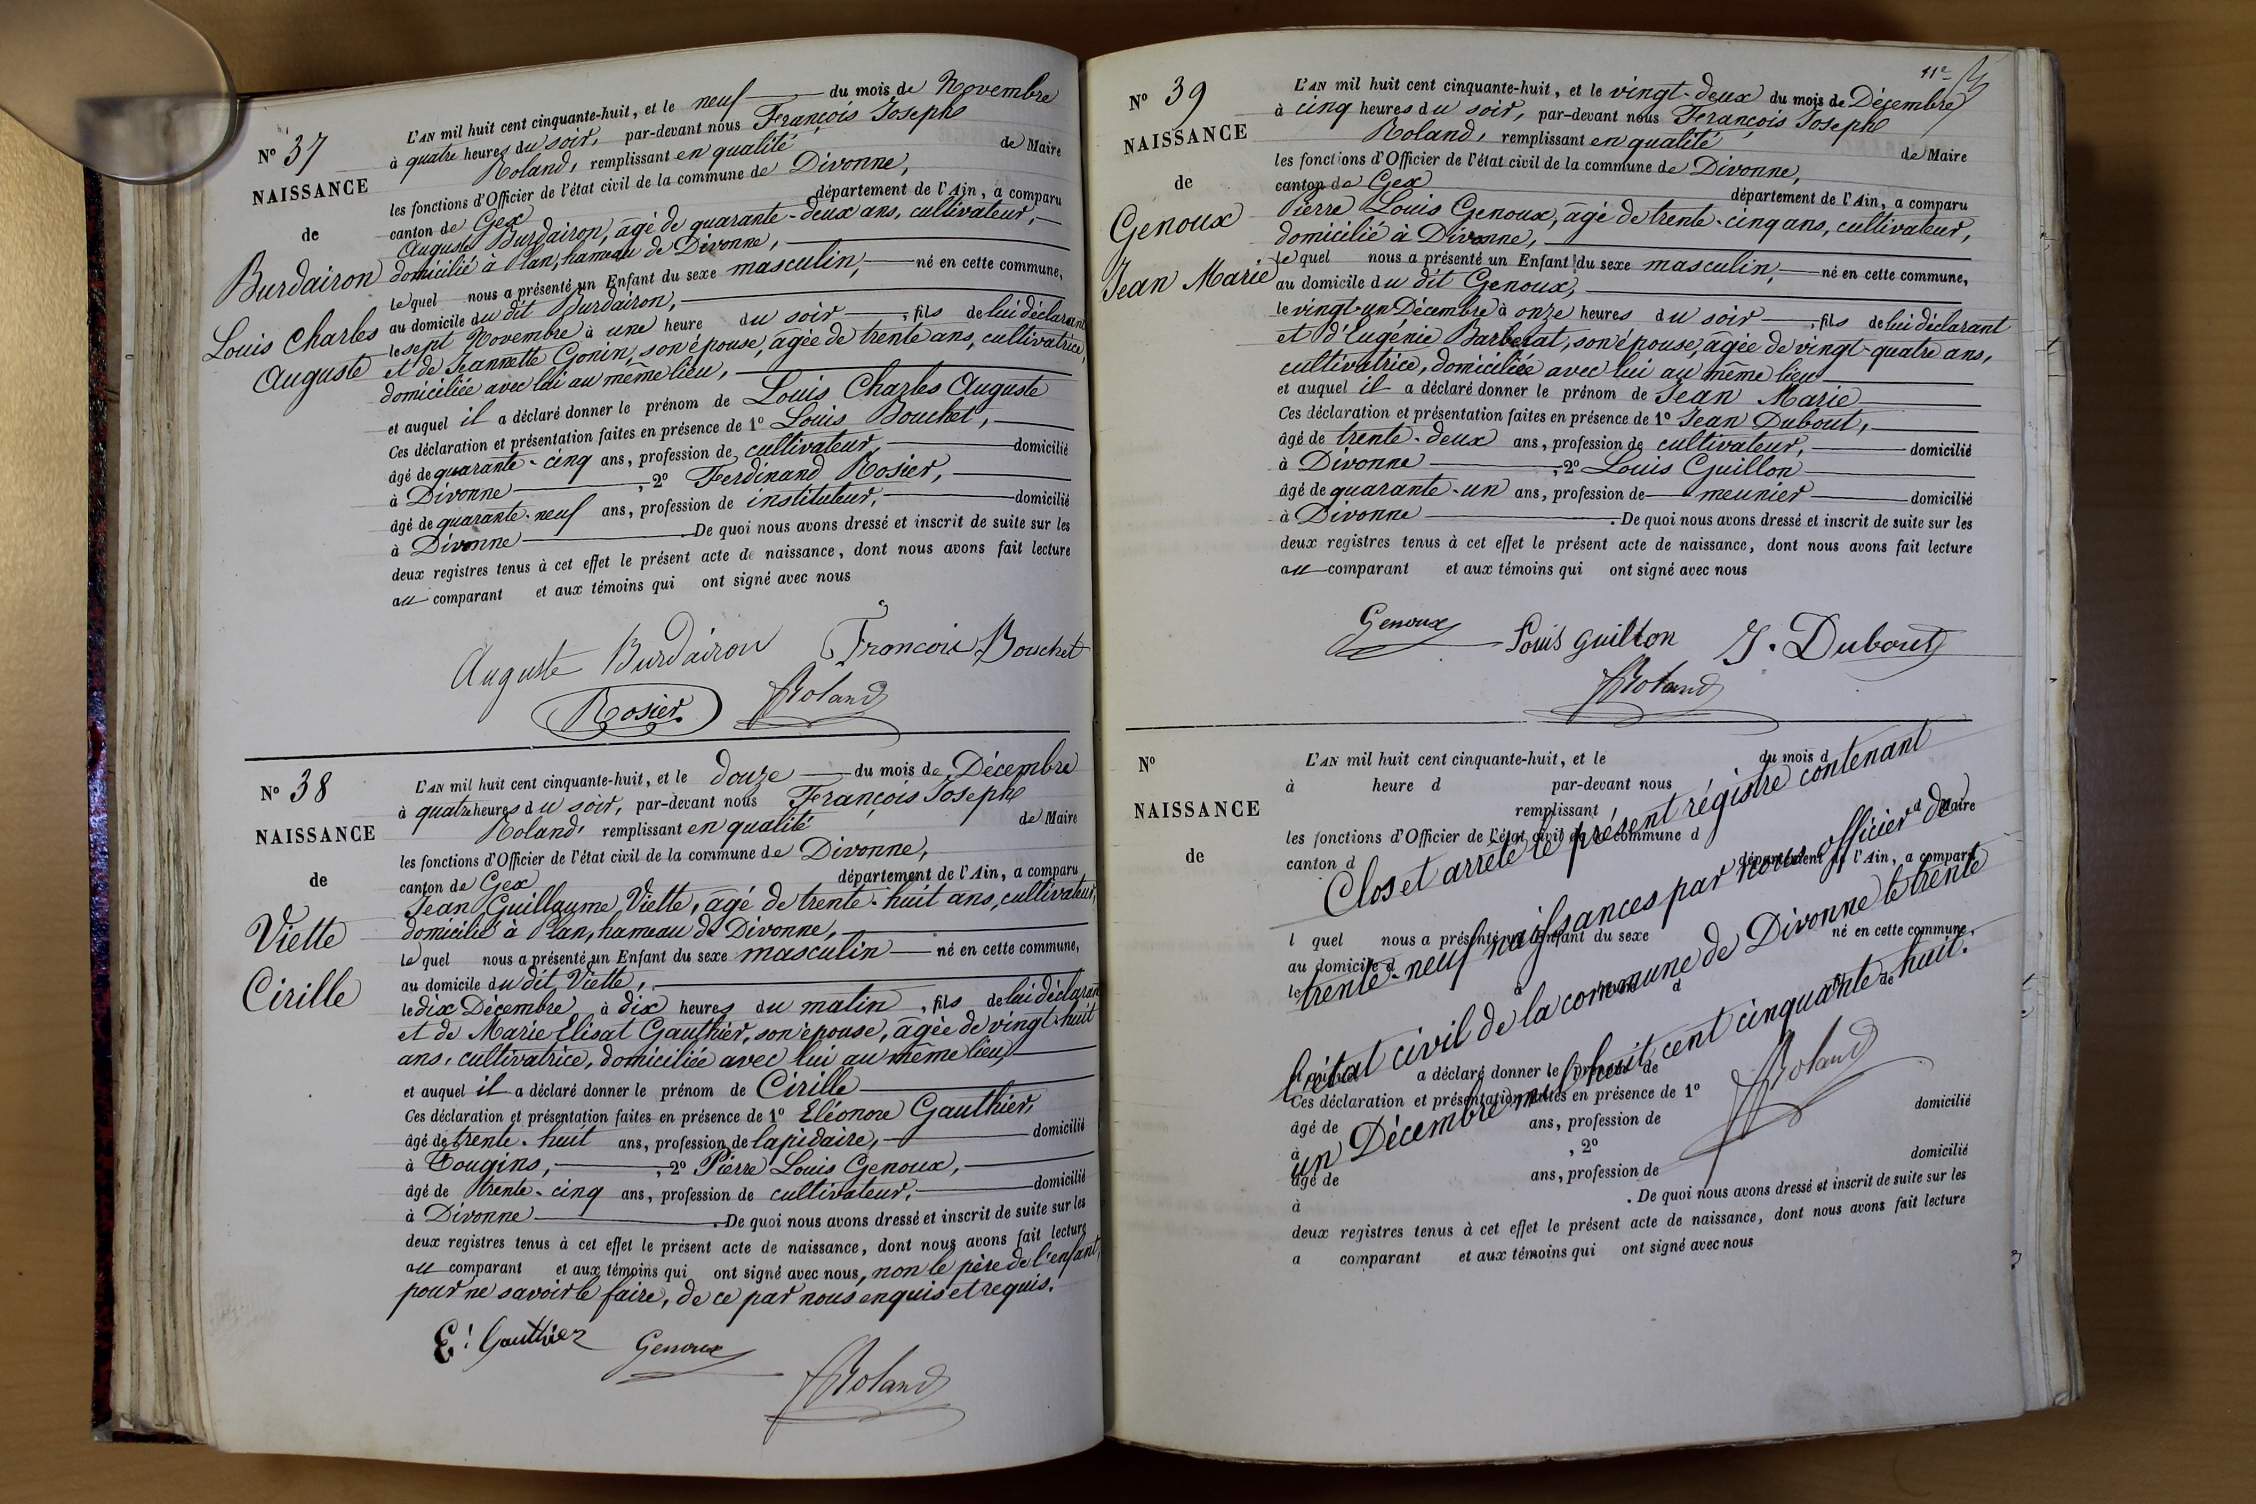 N° 37
NAISSANCE
de
Burdairon
Louis Charles
Auguste
L'AN mil huit cent cinquante-huit, et le neuf du mois de Novembre
à quatre heures du soir, par-devant nous François Joseph
Roland, remplissant en qualité de Maire
les fonctions d'Officier de l'état civil de la commune de Divonne,
canton de Gex département de l'Ain, a comparu
Auguste Burdairon, âgé de quarante-deux ans, cultivateur,
domicilié à Plan, hameau de Divonne,
lequel nous a présenté un Enfant du sexe masculin, né en cette commune,
au domicile du dit Burdairon,
le sept Novembre à une heure du soir, fils de lui déclarant
et de Jeannette Gonin, son épouse, âgée de trente ans, cultivatrice,
domiciliée avec lui au même lieu,
et auquel il a déclaré donner le prénom de Louis Charles Auguste
Ces déclaration et présentation faites en présence de 1° Louis Bouchet,
âgé de quarante-cinq ans, profession de cultivateur, domicilié
à Divonne, 2° Ferdinand Rosier,
âgé de quarante-neuf ans, profession de instituteur, domicilié
à Divonne. De quoi nous avons dressé et inscrit de suite sur les
deux registres tenus à cet effet le présent acte de naissance, dont nous avons fait lecture
au comparant et aux témoins qui ont signé avec nous
Auguste Burdairon François Bouchet
Rosier FRoland
N° 38
NAISSANCE
de
Viette
Cirille
L'AN mil huit cent cinquante-huit, et le douze du mois de Décembre
à quatre heures du soir, par-devant nous François Joseph
Roland, remplissant en qualité de Maire
les fonctions d'Officier de l'état civil de la commune de Divonne,
canton de Gex département de l'Ain, a comparu
Jean Guillaume Viette, âgé de trente-huit ans, cultivateur,
domicilié à Plan, hameau de Divonne,
lequel nous a présenté un Enfant du sexe masculin né en cette commune,
au domicile du dit Viette,
le dix Décembre à dix heures du matin, fils de lui déclarant
et de Marie Elisat Gauthier, son épouse, âgée de vingt-huit
ans, cultivatrice, domiciliée avec lui au même lieu,
et auquel il a déclaré donner le prénom de Cirille
Ces déclaration et présentation faites en présence de 1° Eléonore Gauthier,
âgé de trente-huit ans, profession de lapidaire, domicilié
à Tougins, 2° Pierre Louis Genoux,
âgé de trente-cinq ans, profession de cultivateur, domicilié
à Divonne. De quoi nous avons dressé et inscrit de suite sur les
deux registres tenus à cet effet le présent acte de naissance, dont nous avons fait lecture
au comparant et aux témoins qui ont signé avec nous, non le père de l'enfant,
pour ne savoir le faire, de ce par nous enquis et requis.
E! Gauthier Genoux
FRoland
11e
N° 39
NAISSANCE
de
Genoux
Jean Marie
L'AN mil huit cent cinquante-huit, et le vingt-deux du mois de Décembre
à cinq heures du soir, par-devant nous François Joseph
Roland, remplissant en qualité de Maire
les fonctions d'Officier de l'état civil de la commune de Divonne,
canton de Gex département de l'Ain, a comparu
Pierre Louis Genoux, âgé de trente-cinq ans, cultivateur,
domicilié à Divonne,
lequel nous a présenté un Enfant du sexe masculin, né en cette commune,
au domicile du dit Genoux,
le vingt-un Décembre à onze heures du soir, fils de lui déclarant
et d'Eugénie Barberat, son épouse, âgée de vingt-quatre ans,
cultivatrice, domiciliée avec lui au même lieu
et auquel il a déclaré donner le prénom de Jean Marie
Ces déclaration et présentation faites en présence de 1° Jean Dubout,
âgé de trente-deux ans, profession de cultivateur, domicilié
à Divonne, 2° Louis Guillon
âgé de quarante-un ans, profession de meunier domicilié
à Divonne. De quoi nous avons dressé et inscrit de suite sur les
deux registres tenus à cet effet le présent acte de naissance, dont nous avons fait lecture
au comparant et aux témoins qui ont signé avec nous
Genoux Louis Guillon J. Dubout
FRoland
N°
NAISSANCE
de
L'AN mil huit cent cinquante-huit, et le du mois d
à heure d par-devant nous
remplissant d Maire
les fonctions d'Officier de l'état civil de la commune d
canton d département de l'Ain, a comparu
l quel nous a présenté un Enfant du sexe né en cette commune,
au domicile d
le à heure d de
et auquel a déclaré donner le prénom de
Ces déclaration et présentation faites en présence de 1°
âgé de ans, profession de domicilié
à , 2°
âgé de ans, profession de domicilié
à . De quoi nous avons dressé et inscrit de suite sur les
deux registres tenus à cet effet le présent acte de naissance, dont nous avons fait lecture
a comparant et aux témoins qui ont signé avec nous
Clos et arrêté le présent régistre contenant
trente-neuf naissances par nous officier de
l'état civil de la commune de Divonne le trente
un Décembre mil huit cent cinquante huit.
FRoland